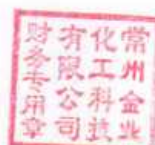 常州金业
化工科技
有限公司
财务专用章